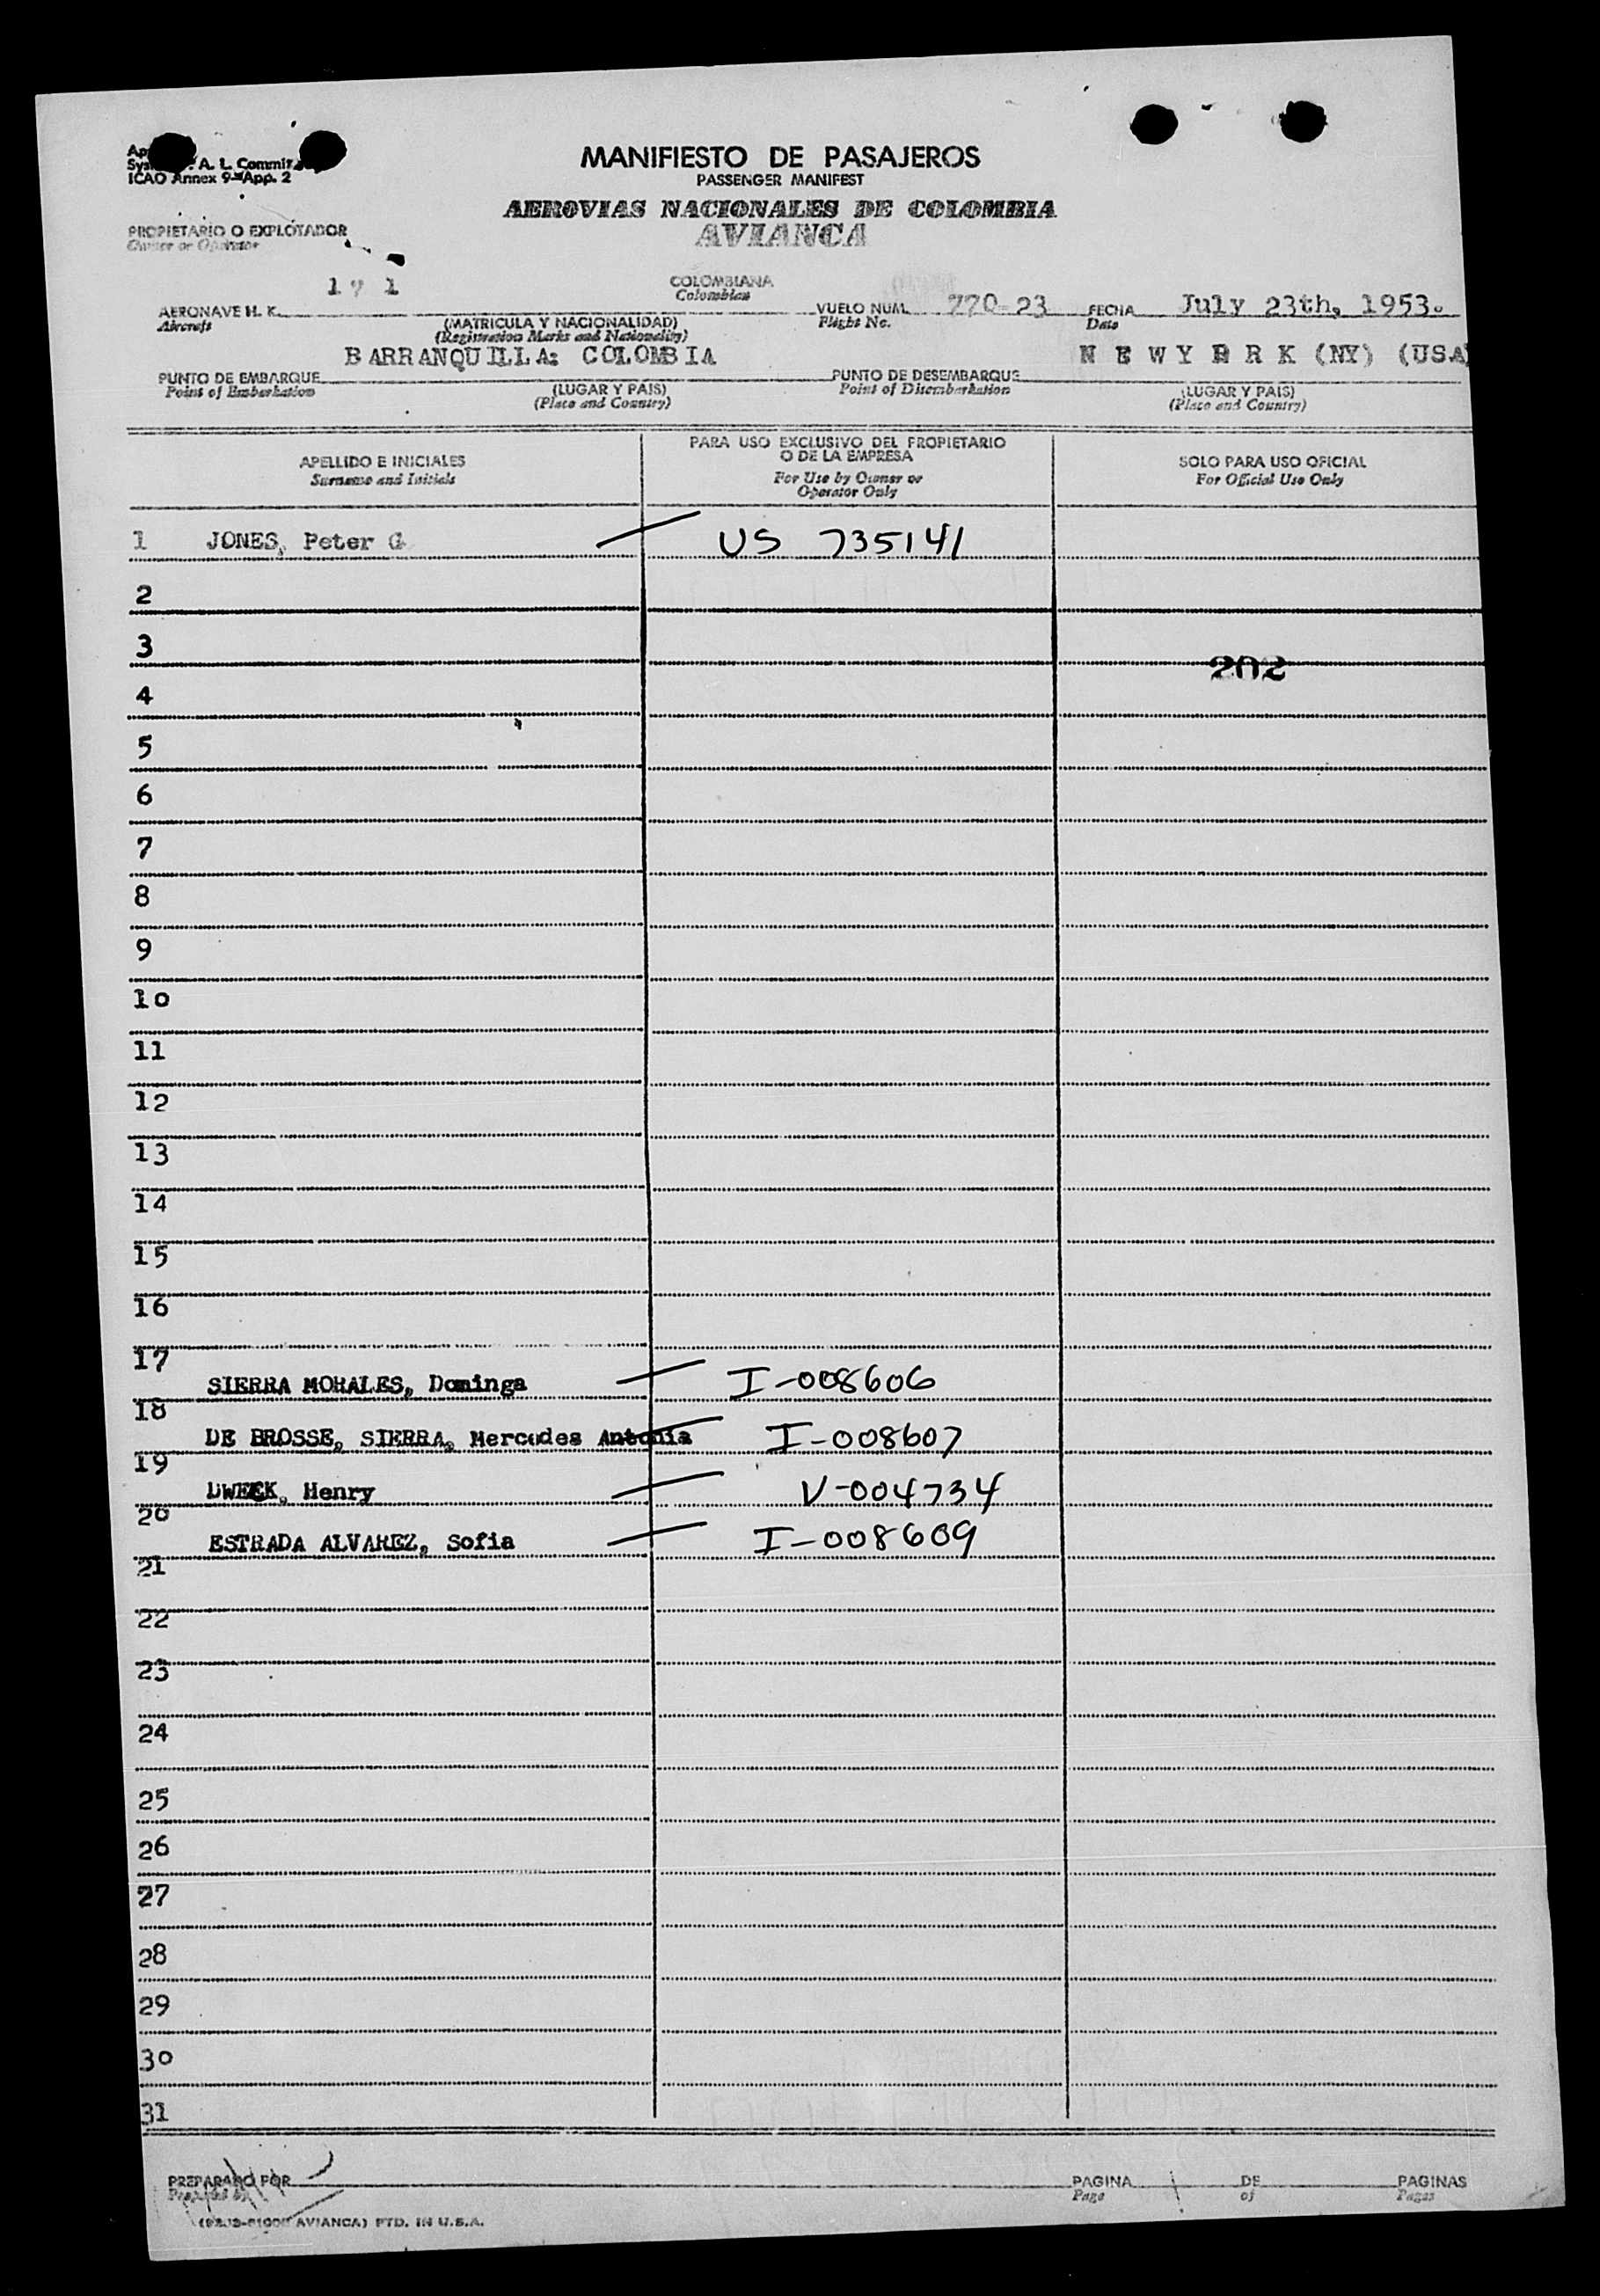 A. L. Commit
ICAO Annex 9-App. 2
MANIFIESTO DE PASAJEROS
PASSENGER MANIFEST
AEROVIAS NACIONALES DE COLOMBIA
AVIANCA
PROPIETARIO O EXPLOTADOR
Owner or Operator
COLOMBIANA
Colombian
AERONAVE H. K. 1 7 1
Aircraft
(MATRICULA Y NACIONALIDAD)
(Registration Marks and Nationality)
VUELO NUM. 770-23
Flight No.
FECHA July 23th, 1953.
Date
PUNTO DE EMBARQUE BARRANQUILLA: COLOMBIA
Point of Embarkation
(LUGAR Y PAIS)
(Place and Country)
PUNTO DE DESEMBARQUE N E W Y O R K (NY) (USA)
Point of Disembarkation
(LUGAR Y PAIS)
(Place and Country)
APELLIDO E INICIALES
Surname and Initials
PARA USO EXCLUSIVO DEL PROPIETARIO
O DE LA EMPRESA
For Use by Owner or
Operator Only
SOLO PARA USO OFICIAL
For Official Use Only
1 JONES, Peter G US 735141
2
3
202
4
5
6
7
8
9
10
11
12
13
14
15
16
17
SIERRA MORALES, Dominga I-008606
18
DE BROSSE, SIERRA, Mercedes Antonia I-008607
19
DWEEK, Henry V-004734
20
ESTRADA ALVAREZ, Sofia I-008609
21
22
23
24
25
26
27
28
29
30
31
PREPARADO POR
Prepared by
PAGINA 1 DE PAGINAS
Page of Pages
AVIANCA) PTD. IN U.S.A.